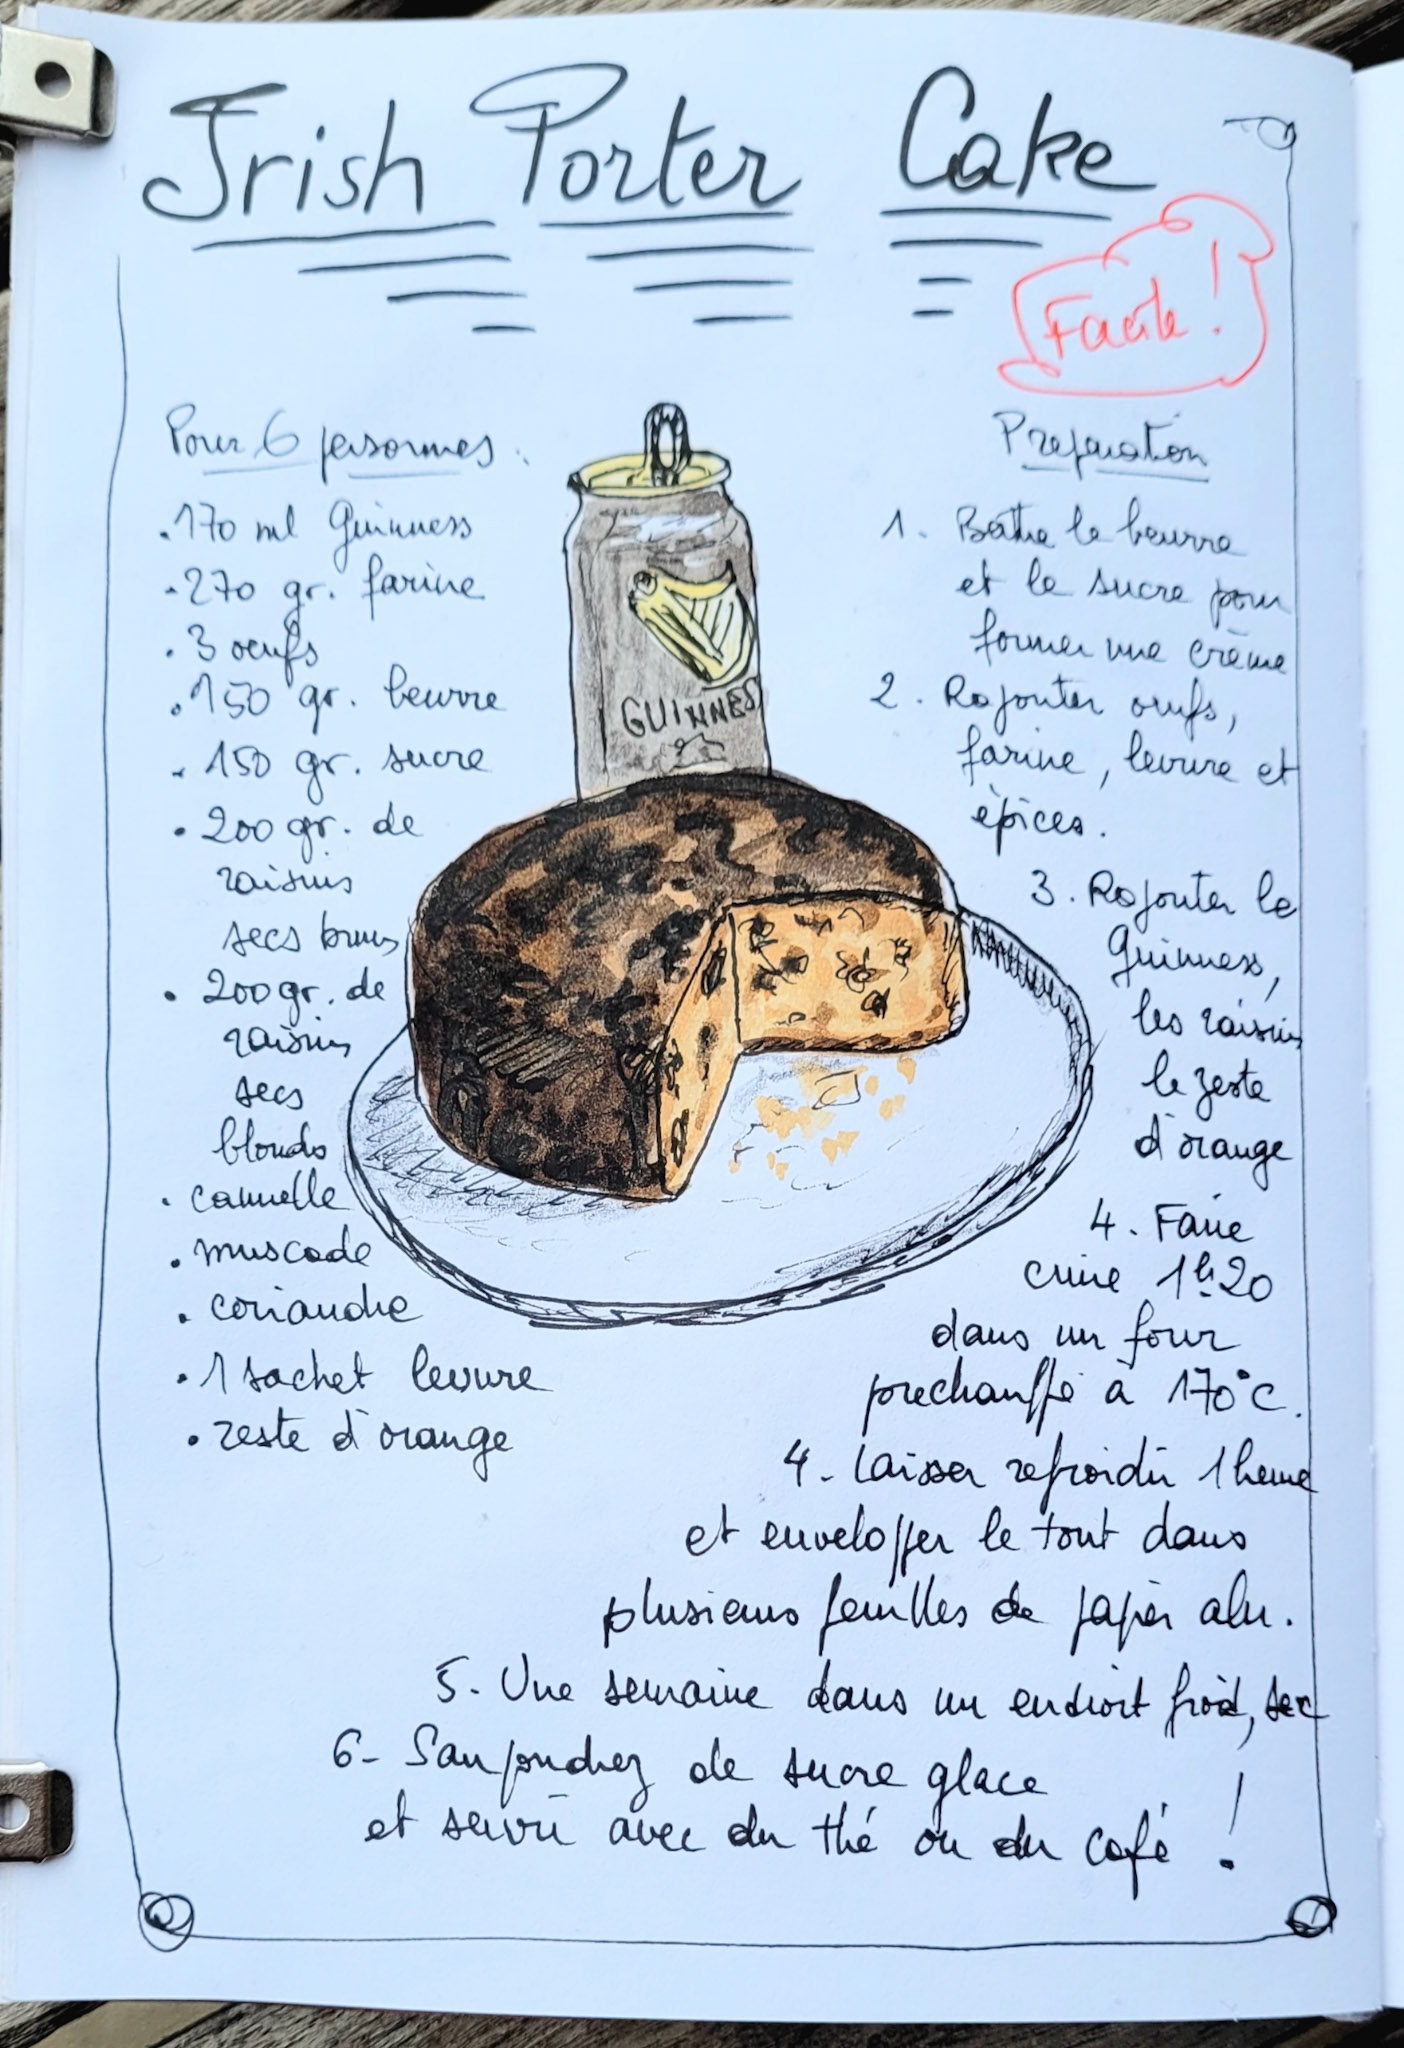 Irish Porter Cake
Facile !
Pour 6 personnes :
• 170 ml Guinness
• 270 gr. farine
• 3 oeufs
• 150 gr. beurre
• 150 gr. sucre
• 200 gr. de
raisins
secs bruns
• 200 gr. de
raisins
secs
blonds
• cannelle
• muscade
• coriandre
• 1 sachet levure
• zeste d'orange
GUINNESS
Preparation
1. Battre le beurre
et le sucre pour
former une crème
2. Rajouter oeufs,
farine, levure et
épices.
3. Rajouter le
Guinness,
les raisins
le zeste
d'orange
4. Faire
cuire 1h20
dans un four
prechauffé à 170°C.
4. Laisser refroidir 1 heure
et envelopper le tout dans
plusieurs feuilles de papier alu.
5. Une semaine dans un endroit froid, sec
6- Saupoudrez de sucre glace
et servir avec du thé ou du café !